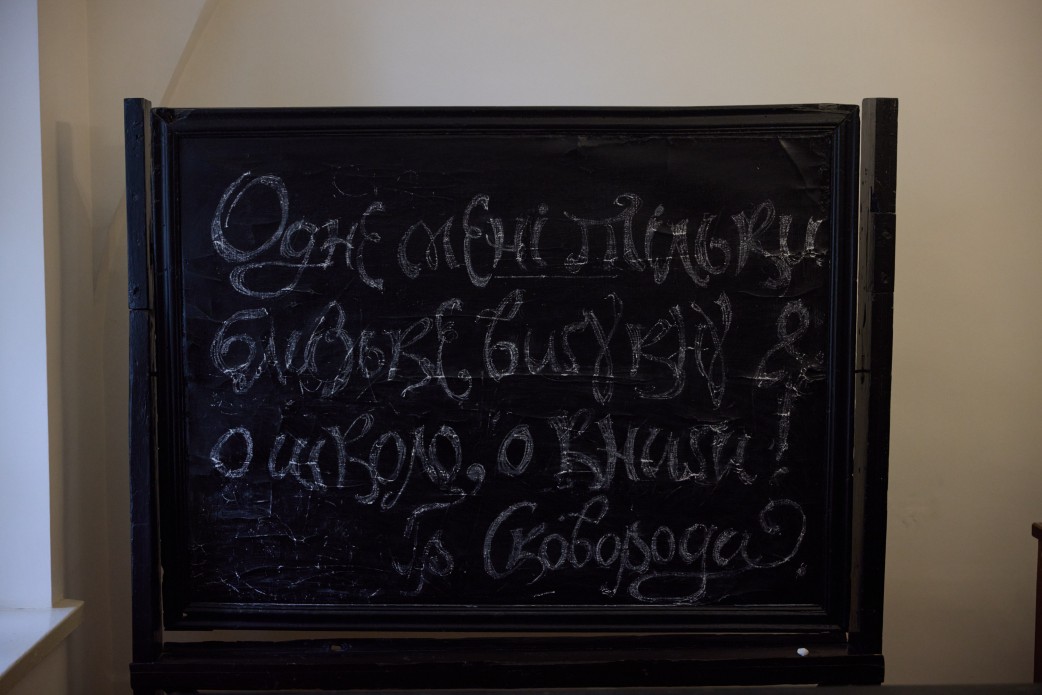 Одне мені тільки
близьке вигукну я
о школо, о книги!
Гр Сковорода